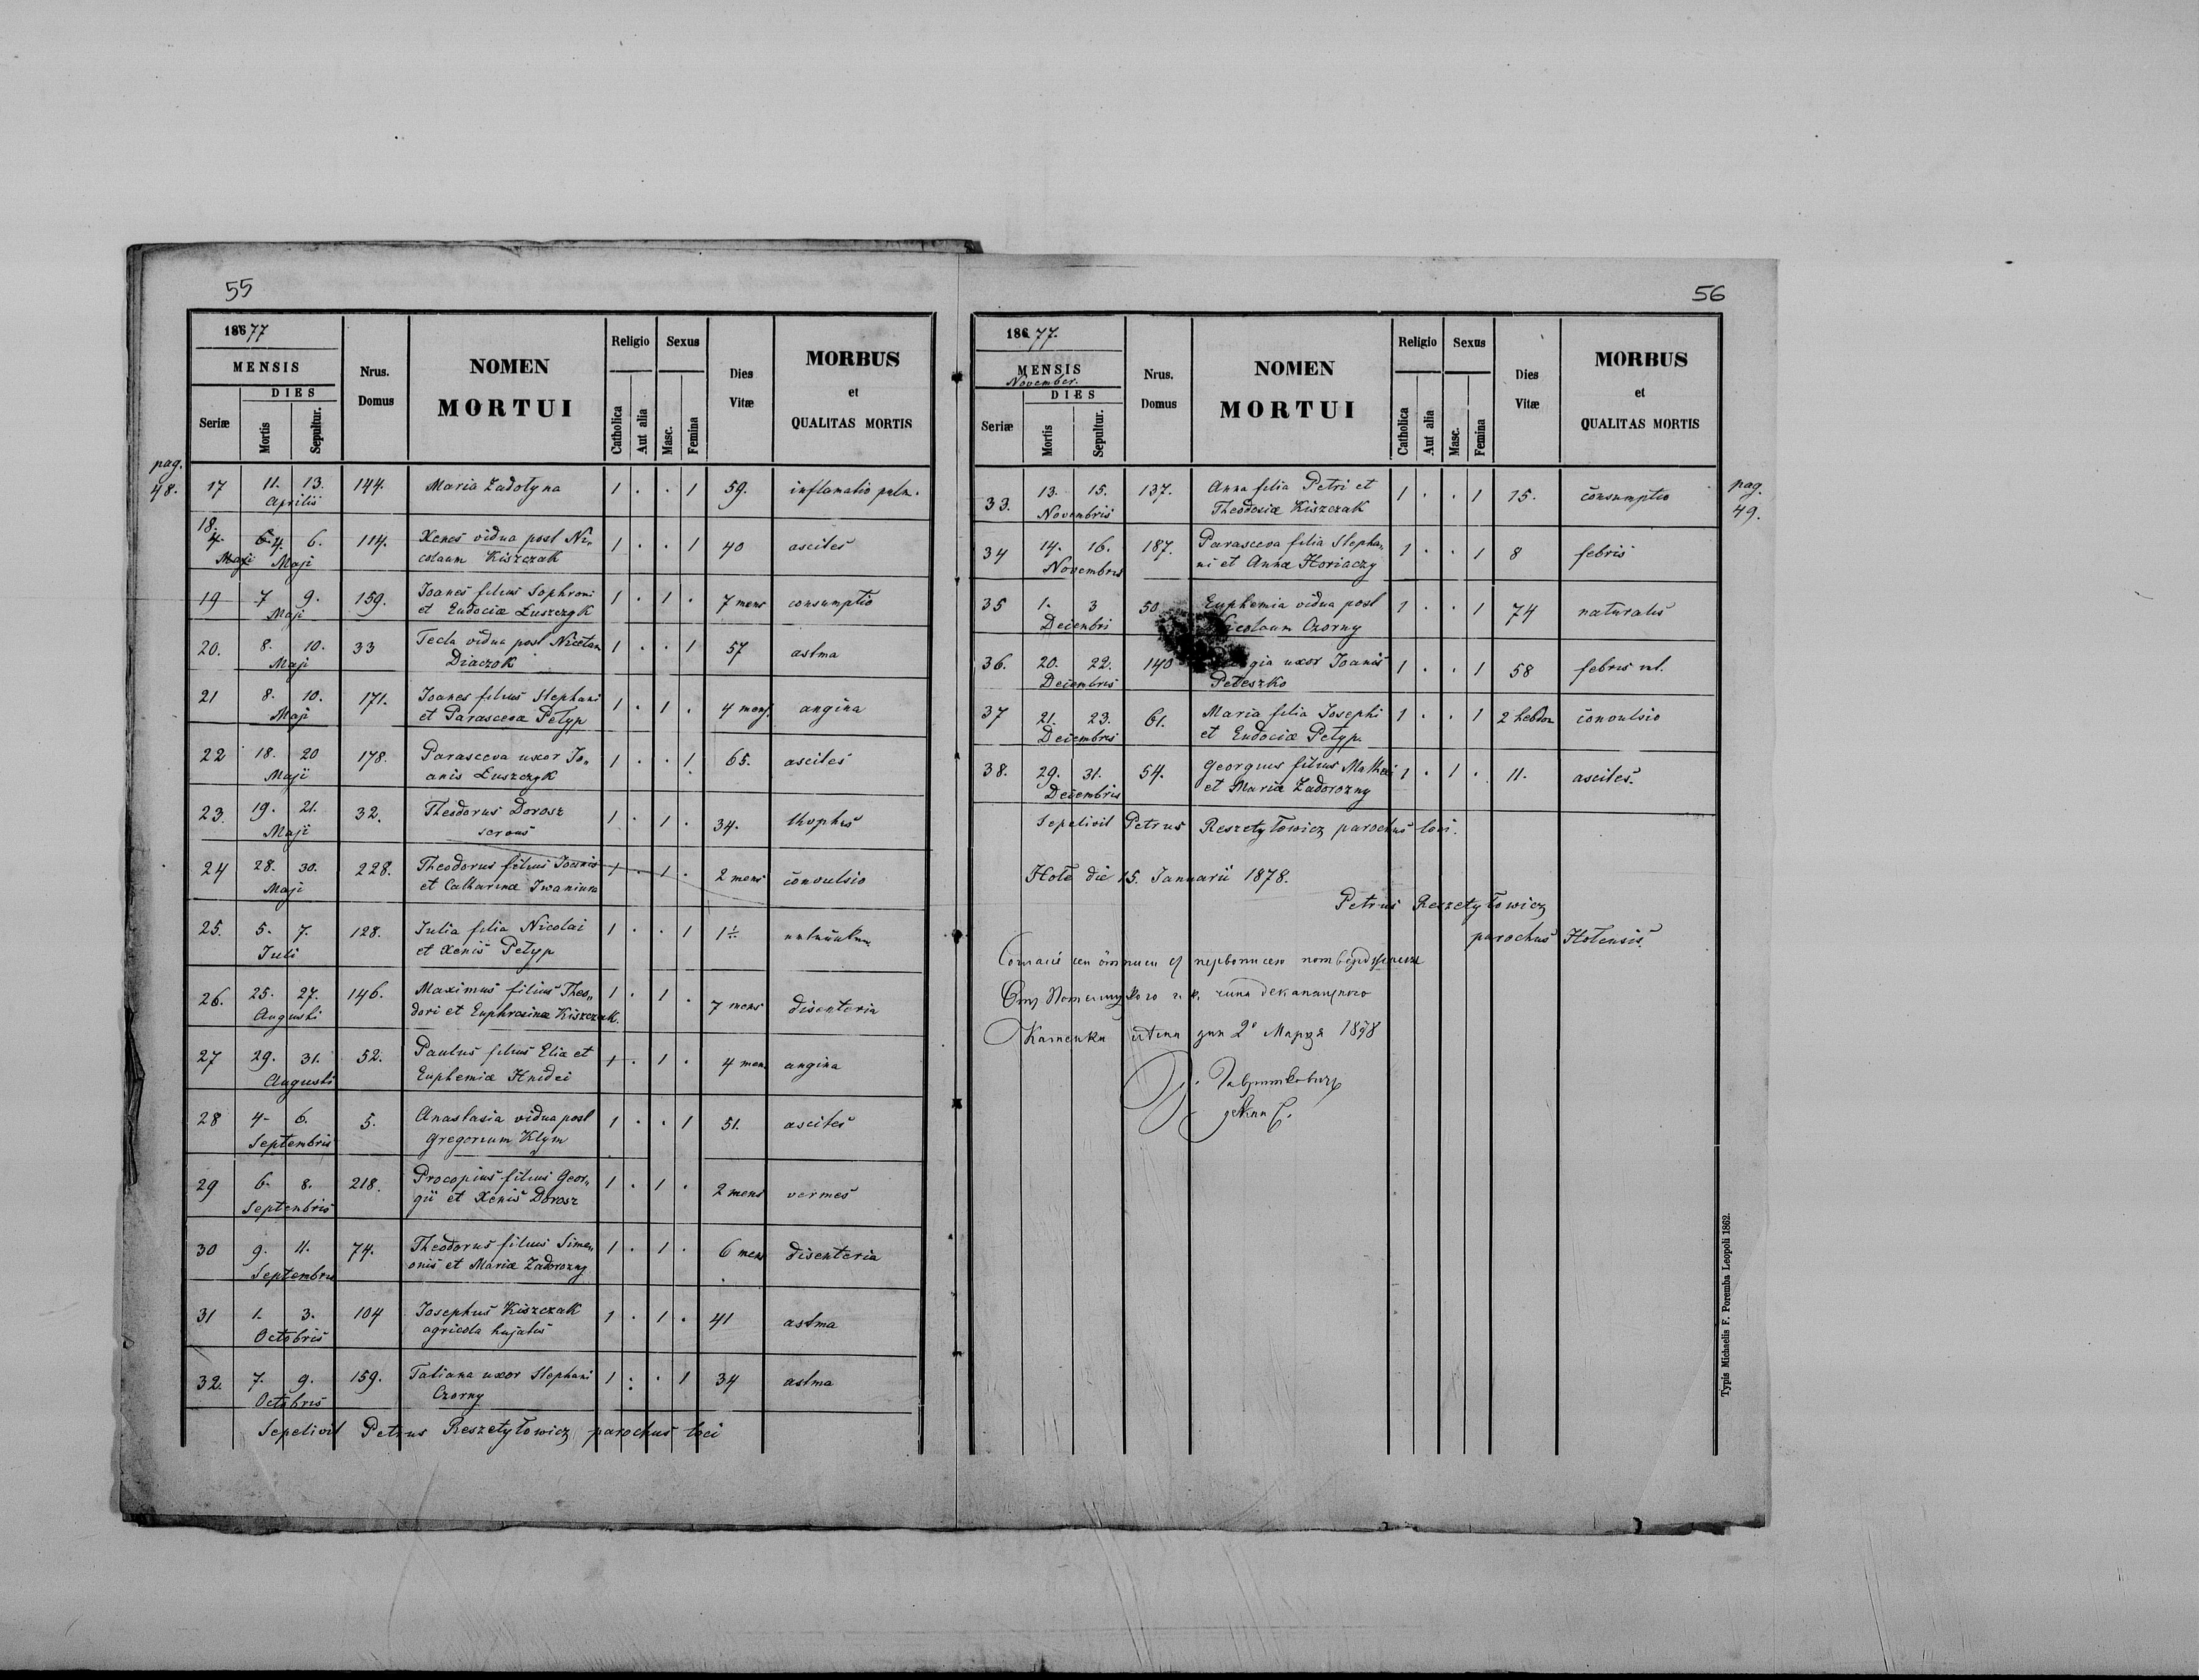 55
1867 77
MENSIS
DIES
Seriæ
Mortis
Sepultur.
Nrus.
Domus
NOMEN
MORTUI
Religio
Catholica
Aut alia
Sexus
Masc.
Femina
Dies
Vitæ
MORBUS
et
QUALITAS MORTIS
pag.
48.
17 11. 13. 144. Maria Zadolyna 1 . . 1 59. inflamatio pulm.
Aprilis
18. 4. 6. 114. Xenes vidua post Ni„ 1 . . 1 40 ascites
Maji Maji colaum Kiszczak
19 7 9. 159. Joanes filius Sophroni 1 . 1 . 7 mens consumptio
Maji et Eudociæ Łuszczyk
20. 8. 10. 33 Tecla vidua post Nicetam 1 . . 1 57 astma
Maji Diaczok
21 8. 10. 171. Joanes filius Stephani 1 . 1 . 4 mens. angina
Maji et Parascevæ Petyp
22 18. 20 178. Parasceva uxor Jo„ 1 . . 1. 65. ascites
Maji anis Łuszczyk
23. 19. 21. 32. Theodorus Dorosz 1 . 1 . 34. thophus
Maji servus
24 28. 30. 228. Theodorus filius Joanis 1 . 1 . 2 mens convulsio
Maji et Catharinæ Iwaniura
25. 5. 7. 128. Julia filia Nicolai 1 . . 1
Juli et Xenis Petyp
26. 25. 27. 146. Maximus filius Theo„ 1 . 1 . 7 mens disenteria
Augusti dori et Euphrosinæ Kiszczak.
27 29. 31. 52. Paulus filius Eliæ et 1 . 1 . 4 mens angina
Augusti Euphemiæ Hnidei
28 4. 6. 5. Anastasia vidua post 1 . . 1 51. ascites
Septembris Gregorium Klym
29 6. 8. 218. Procopius filius Geor„ 1 . 1 . 2 mens vermes
Septembris gii et Xenis Dorosz
30 9. 11. 74. Theodorus filius Sime„ 1 . 1 . 6 mens disenteria
Septembris onis et Mariæ Zadorozny
31 1. 3. 104 Josephus Kiszczak 1 . 1 . 41 astma
Octobris agricola hujatis
32. 7. 9. 159. Tatiana uxor Stephani 1 : . 1 34 astma
Octobris Czorny
Sepelivit Petrus Reszetyłowicz parochus loci
56
186 77.
MENSIS
November.
DIES
Seriæ
Mortis
Sepultur.
Nrus.
Domus
NOMEN
MORTUI
Religio
Catholica
Aut alia
Sexus
Masc.
Femina
Dies
Vitæ
MORBUS
et
QUALITAS MORTIS
pag.
49.
33. 13. 15. 137. Anna filia Petri et 1 . . 1 15. consumptio
Novembris Theodosiæ Kiszczak
34 14. 16. 187. Parasceva filia Stepha„ 1 . . 1 8 febris
Novembris ni et Annæ Horiaczy
35 1. 3 50 Euphemia vidua post 1 . . 1 74 naturalis
Decembri Nicolaum Czorny
36. 20. 22. 140 uxor Joanis 1 . . 1 58 febris
Decembris Peteszko
37 21. 23. 61. Maria filia Josephi 1 . . 1 2 hebdom convulsio
Decembris et Eudociæ Petyp.
38. 29. 31. 54. Georgius filius Mathei 1 . 1 . 11. ascites.
Decembris et Mariæ Zadorozny
Sepelivit Petrus Reszetyłowicz parochus loci.
Hole die 15. Januarii 1878.
Petrus Reszetyłowicz
parochus Holensis.
Камєнка дня 2 Марця 1878
Typis Michaelis F. Poremba Leopoli 1862.